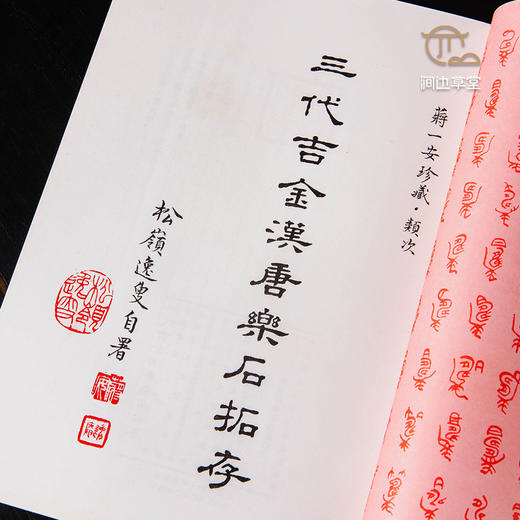 蔣一安珍藏·類次
三代吉金漢唐樂石拓存
松嶺逸叟自署
涧边草堂